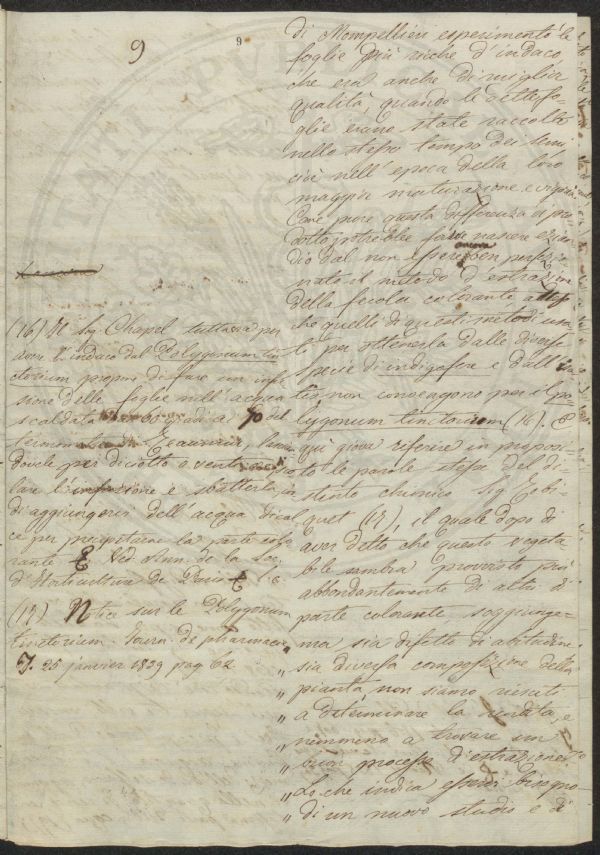 9
9
di Mompellieri esperimentò le
foglie più ricche d'indaco,
che era anche di miglior
qualità, quando le dette fo-
glie erano state raccolte
nello stesso tempo dei semi
cioè nell'epoca della loro
maggior maturazione e vigoria
pure questa differenza di pro
dotto potrebbe nascere ezian
dio dal non essere ancora ben perfezio
nato il metodo d'estrazion
della fecola colorante
che quelli di questi metodi usa
ti per ottenerla dalle diverse
specie di indigofere e dall'
non convengono per il po
lygonum tinctorium (16). E
qui giova riferire in proposi
to le parole stesse del di-
stinto chimico Sig Robi-
quet (17), il quale dopo di
aver detto che questo vegeta
bile sembra provvisto più
abbondantemente di altri di
parte colorante soggiunge-
ma sia difetto di abitudine
„ sia diversa composizione della
„ pianta non siamo riesciti
„ a determinare la rendita, e
„ nemmeno a trovare un
„ buon processo d'estrazione
„ Lo che indica esservi bisogno
„ di un nuovo studio e di
(16) Il Sig Chapel tuttavia per
aver l'indaco dal Polygonum tin
ctorium propone di fare un infu
sione delle foglie nell'acqua
scaldata 60 gradi a 70 del
termometro Reaumur,
dovele per diciotto o venti
lare l'infusione e sbatterla, in
di aggiungervi dell'acqua di cal
ce per precipitarne la parte colo
rante Ved. Ann. de la Soc.
d'Horticulture de Paris l. c.
(17) Notice sur le Polygonum
tinctorium. Journ. de pharmacie
T. 25 janvier 1839 pag 62